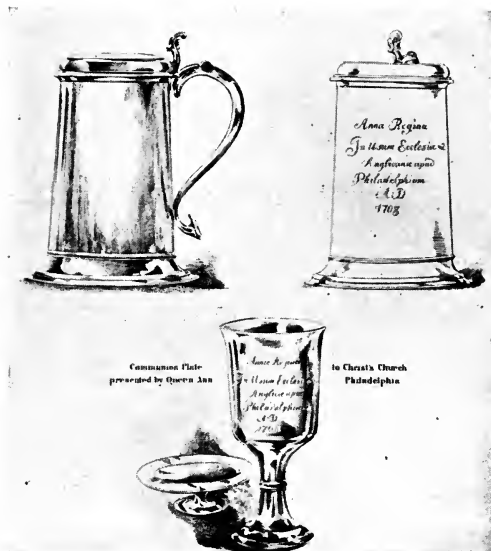 Anna Regina
In Usum Ecclesiæ
Anglicanæ apud
Philadelphiam
A.D.
1708
Communion Plate
presented by Queen Ann
to Christ's Church
Philadelphia
Anna Regina
In Usum Ecclesiæ
Anglicanæ apud
Philadelphiam
A.D.